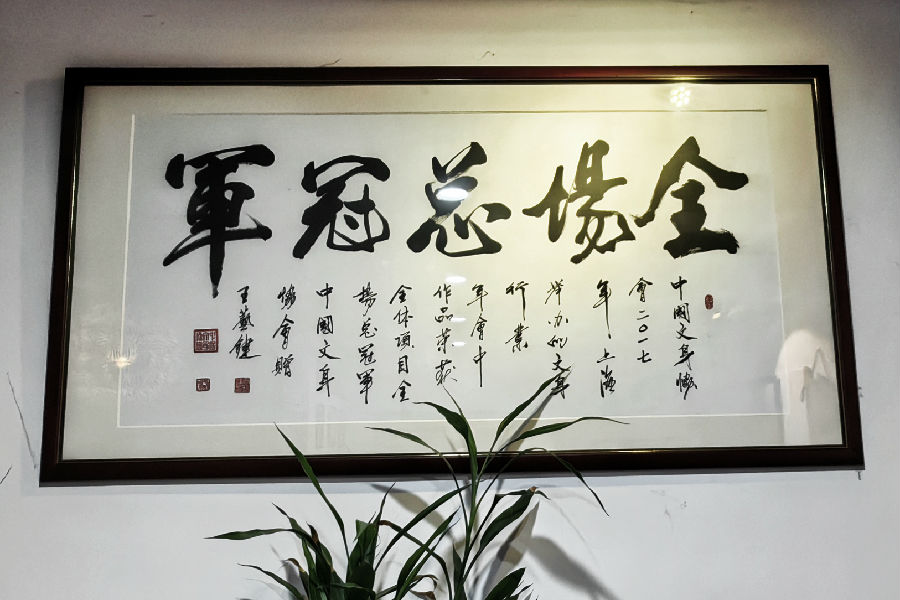 全場总冠軍
中國文身協
會二〇一七
年·上海
举办的文身
行業
年會中
作品荣获
全体項目全
場总冠軍
中國文身
協會贈
王藝